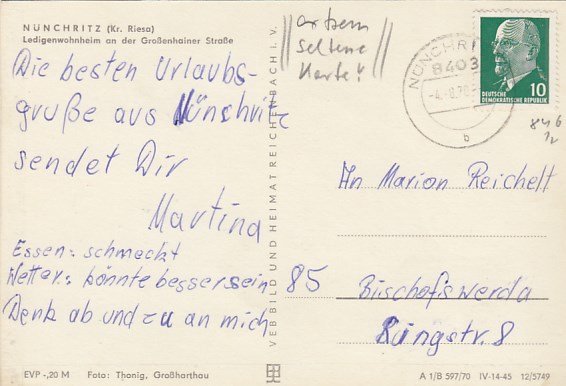 NÜNCHRITZ (Kr. Riesa)
Ledigenwohnheim an der Großenhainer Straße
Die besten Urlaubs-
grüße aus Nünchritz
sendet Dir
Martina
Essen: schmeckt
Wetter: könnte besser sein
Denk ab und zu an mich
EVP -,20 M Foto: Thonig, Großharthau
VEB BILD UND HEIMAT REICHENBACH I. V.
seltene
Karte!
NÜNCHRI
8403
b
10
DEUTSCHE
DEMOKRATISCHE REPUBLIK
846
An Marion Reichelt
85 Bischofswerda
Ringstr. 8
A 1/B 597/70 IV-14-45 12/5749